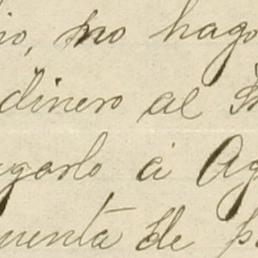 io, no hago
dinero al
garlo á Ag
menta de p